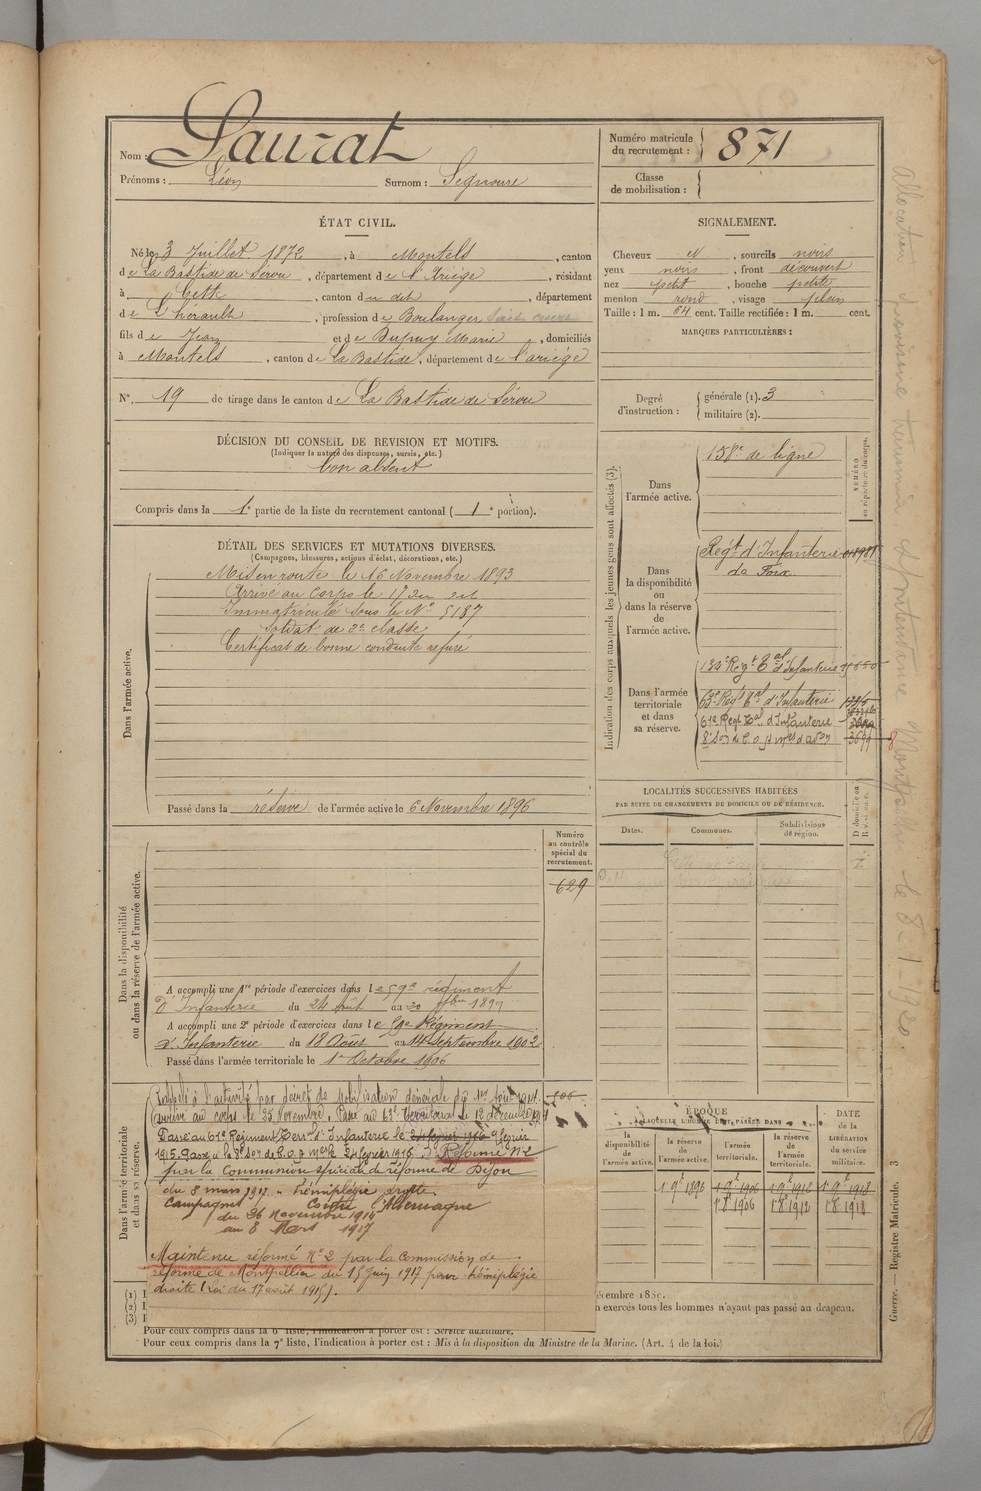 Nom : Lauzat
Prénoms : Léon Surnom : Segnoure
ÉTAT CIVIL.
Né le 3 Juillet 1872, à Montels, canton
de La Bastide de Sérou, département de l'Ariège, résidant
à Cette, canton du dit, département
de L'hérault, profession de Boulanger
fils de Jean et de Dupuy Marie, domiciliés
à Montels, canton de La Bastide, département de l'ariège
N° 19 de tirage dans le canton de La Bastide de Sérou
DÉCISION DU CONSEIL DE REVISION ET MOTIFS.
(Indiquer la nature des dispenses, sursis, etc.)
bon absent
Compris dans la 1e partie de la liste du recrutement cantonal (1e portion).
DÉTAIL DES SERVICES ET MUTATIONS DIVERSES.
(Campagnes, blessures, actions d'éclat, décorations, etc.)
Dans l'armée active.
Mis en route le 16 Novembre 1893
Arrivé au corps le 17 du dit
Immatriculé sous le N° 5187
Soldat de 2e classe
Certificat de bonne conduite refusé
Passé dans la réserve de l'armée active le 6 Novembre 1896
Dans la disponibilité
ou dans la réserve de l'armée active.
Numéro
au contrôle
spécial du
recrutement.
629
A accompli une 1re période d'exercices dans le 59e régiment
d'Infanterie du 24 Août au 20 7bre 1899
A accompli une 2e période d'exercices dans le 59e Régiment
d'Infanterie du 18 Août au 14 Septembre 1902
Passé dans l'armée territoriale le 1er Octobre 1906
Dans l'armée territoriale
et dans sa réserve.
Rappelé à l'activité par décret de Mobilisation Générale du 1er Août 1914.
arrivé au corps le 25 Novembre. Passé au 63e territorial le 12 décembre 1914
Passé au 61e Régiment Terral d'Infanterie le 24 février 1916 9 février
1915. Passé à la 8e Son de C.O.A. Mre le 24 février 1915. Réformé N° 2
par la Commission spéciale de réforme de Dijon
du 8 mars 1917. Hémiplégie droite.
Campagnes Contre l'Allemagne
du 26 Novembre 1914
au 8 Mars 1917
Maintenu réformé N° 2 par la Commission de
réforme de Montpellier du 15 Juin 1917 pour hémiplégie
droite (Loi du 17 août 1915).
(1) I
(2) I
(3) I
Pour ceux compris dans la 6e liste, l'indication à porter est : Service auxiliaire.
Pour ceux compris dans la 7e liste, l'indication à porter est : Mis à la disposition du Ministre de la Marine. (Art. 4 de la loi.)
Numéro matricule
du recrutement : 871
Classe
de mobilisation :
SIGNALEMENT.
Cheveux et, sourcils noirs
yeux noirs, front découvert
nez petit, bouche petite
menton rond, visage plein
Taille : 1 m. 64 cent. Taille rectifiée : 1 m. cent.
MARQUES PARTICULIÈRES :
Degré
d'instruction :
générale (1). 3
militaire (2).
Indication des corps auxquels les jeunes gens sont affectés (3).
NUMÉRO
au répertoire du corps.
Dans
l'armée active.
158e de ligne
Dans
la disponibilité
ou
dans la réserve
de
l'armée active.
Régt d'Infanterie
de Foix
Dans l'armée
territoriale
et dans
sa réserve.
132e Régt Tal d'Infanterie
63e Régt Tal d'Infanterie
61e Régt Tal d'Infanterie
8e Son de C.O.A. 3694
LOCALITÉS SUCCESSIVES HABITÉES
PAR SUITE DE CHANGEMENTS DE DOMICILE OU DE RÉSIDENCE.
Dates.
Communes.
Subdivisions
de région.
D domicile ou
R résidence.
ÉPOQUE
À LAQUELLE L'HOMME DOIT PASSER DANS
la
disponibilité
de
l'armée active.
la réserve
de
l'armée active.
l'armée
territoriale.
la réserve
de
l'armée
territoriale.
DATE
de la
LIBÉRATION
du service
militaire.
1 9e 1896 1 9e 1906 1 9e 1912 1 9e 1918
1 8e 1906 1 8e 1912 1 8e 1918
cembre 188
n exercés tous les hommes n'ayant pas passé au drapeau.
Guerre. — Registre Matricule. 3
Allocation Intendance Montpellier le 8-1-1920.